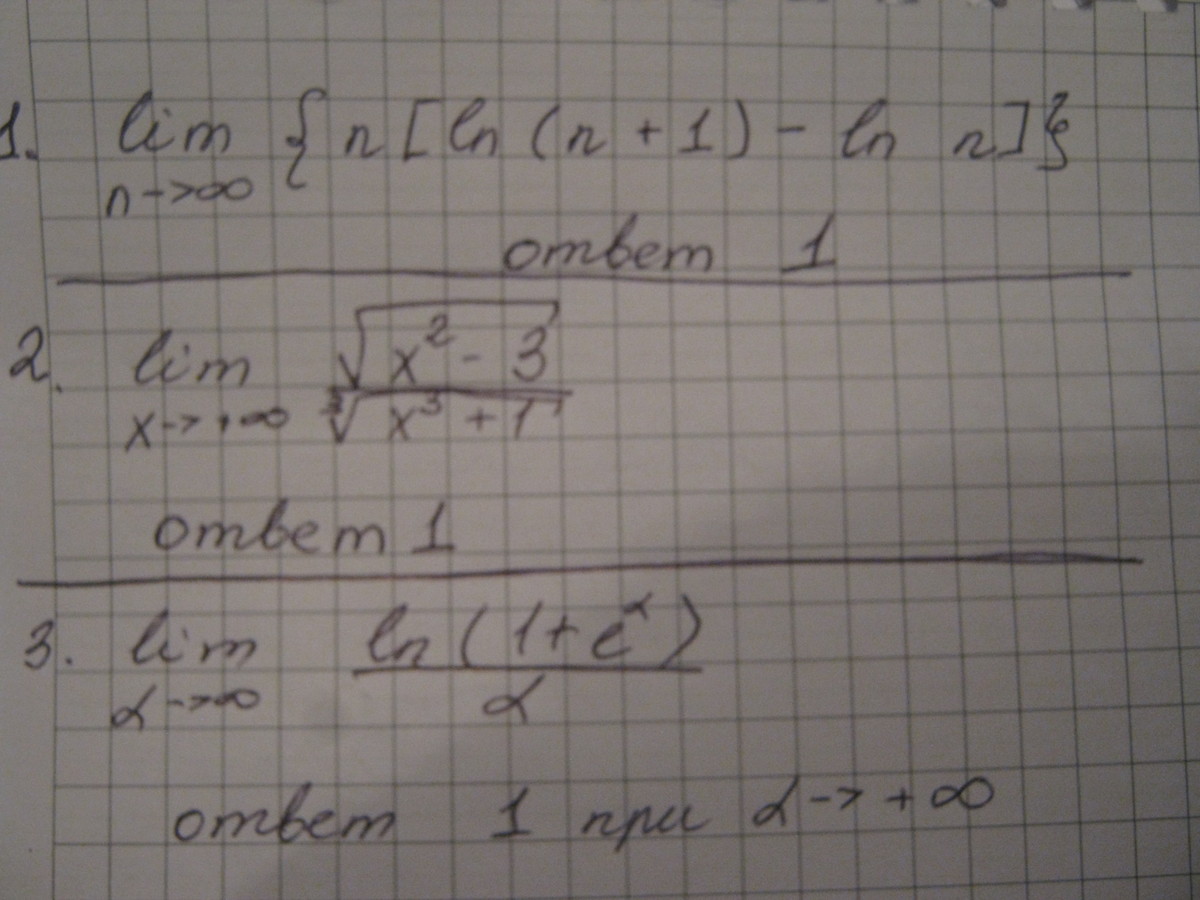 1. lim {n[ln(n+1) - ln n]}
n->∞
ответ 1
2. lim √(x² - 3)
x->+∞ ∛(x³ + 1)
ответ 1
3. lim ln(1+e^α)
α->∞ α
ответ 1 при α->+∞